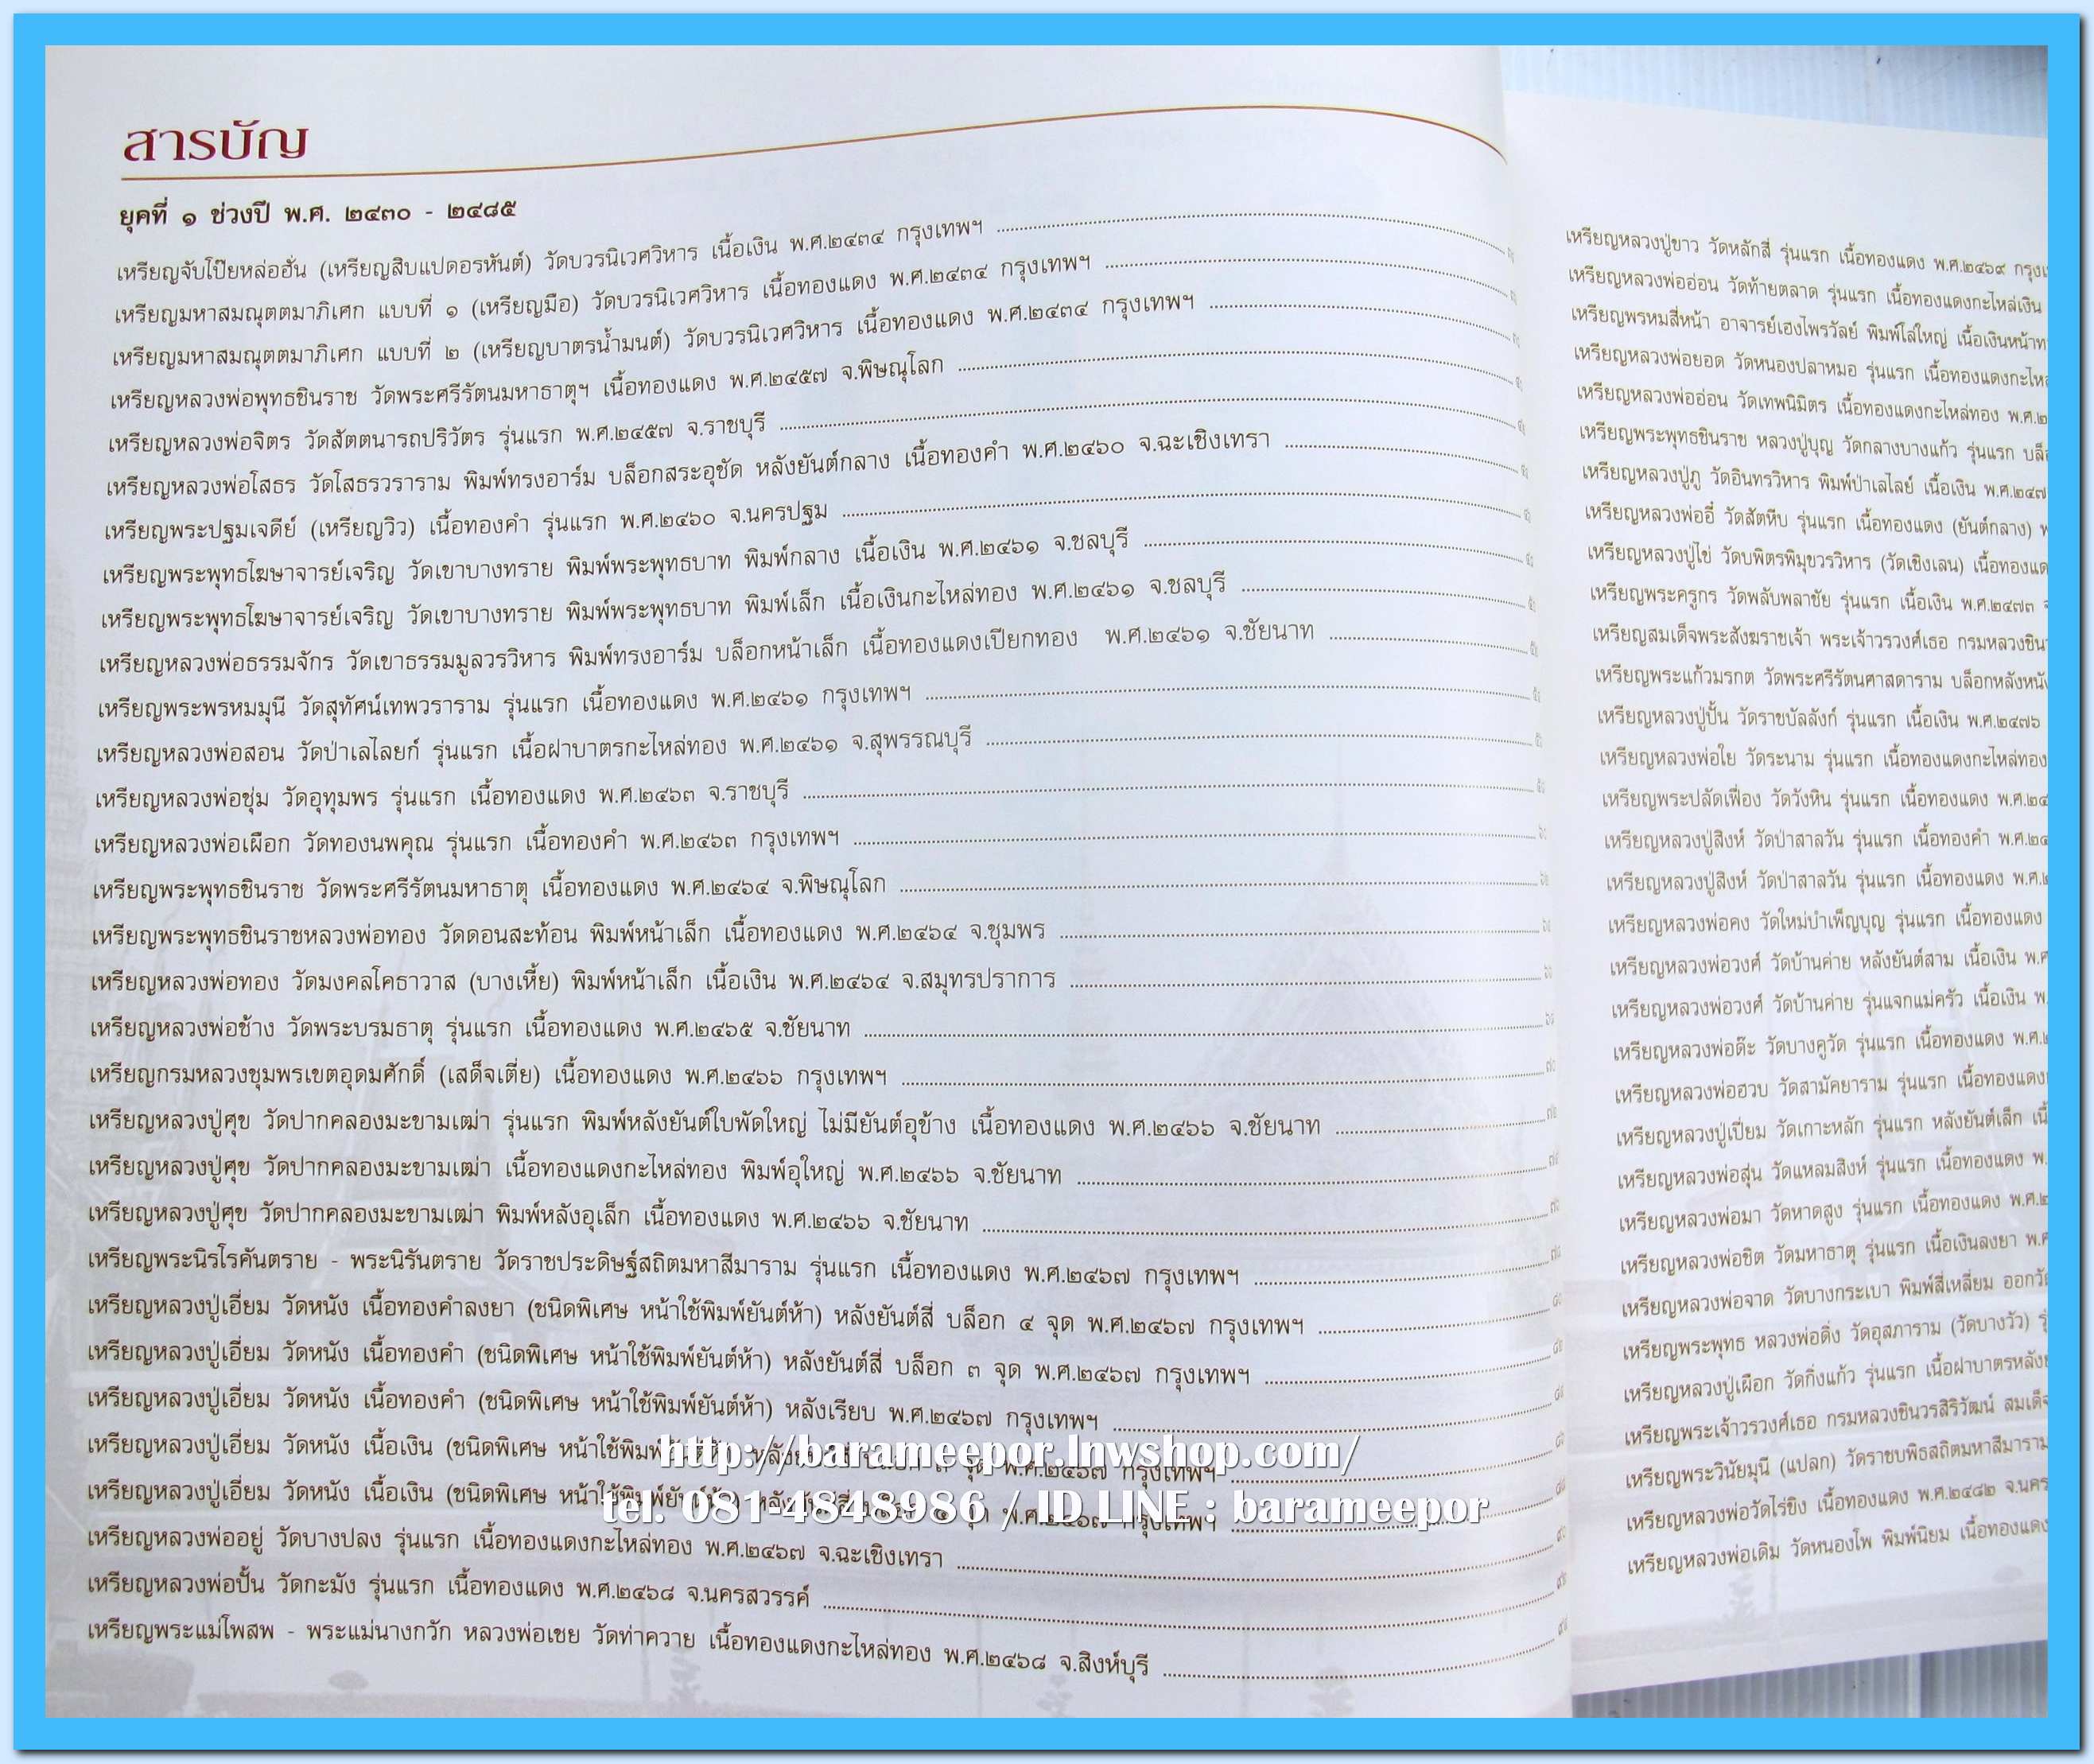 สารบัญ
ยุคที่ ๑ ช่วงปี พ.ศ. ๒๔๓๐ - ๒๔๘๕
เหรียญจับโป๊ยหล่อฮั่น (เหรียญสิบแปดอรหันต์) วัดบวรนิเวศวิหาร เนื้อเงิน พ.ศ.๒๔๓๔ กรุงเทพฯ
เหรียญมหาสมณุตตมาภิเศก แบบที่ ๑ (เหรียญมือ) วัดบวรนิเวศวิหาร เนื้อทองแดง พ.ศ.๒๔๓๔ กรุงเทพฯ
เหรียญมหาสมณุตตมาภิเศก แบบที่ ๒ (เหรียญบาตรน้ำมนต์) วัดบวรนิเวศวิหาร เนื้อทองแดง พ.ศ.๒๔๓๔ กรุงเทพฯ
เหรียญหลวงพ่อพุทธชินราช วัดพระศรีรัตนมหาธาตุฯ เนื้อทองแดง พ.ศ.๒๔๕๗ จ.พิษณุโลก
เหรียญหลวงพ่อจิตร วัดสัตตนารถปริวัตร รุ่นแรก พ.ศ.๒๔๕๗ จ.ราชบุรี
เหรียญหลวงพ่อโสธร วัดโสธรวราราม พิมพ์ทรงอาร์ม บล็อกสระอุชัด หลังยันต์กลาง เนื้อทองคำ พ.ศ.๒๔๖๐ จ.ฉะเชิงเทรา
เหรียญพระปฐมเจดีย์ (เหรียญวิว) เนื้อทองคำ รุ่นแรก พ.ศ.๒๔๖๐ จ.นครปฐม
เหรียญพระพุทธโฆษาจารย์เจริญ วัดเขาบางทราย พิมพ์พระพุทธบาท พิมพ์กลาง เนื้อเงิน พ.ศ.๒๔๖๑ จ.ชลบุรี
เหรียญพระพุทธโฆษาจารย์เจริญ วัดเขาบางทราย พิมพ์พระพุทธบาท พิมพ์เล็ก เนื้อเงินกะไหล่ทอง พ.ศ.๒๔๖๑ จ.ชลบุรี
เหรียญหลวงพ่อธรรมจักร วัดเขาธรรมมูลวรวิหาร พิมพ์ทรงอาร์ม บล็อกหน้าเล็ก เนื้อทองแดงเปียกทอง พ.ศ.๒๔๖๑ จ.ชัยนาท
เหรียญพระพรหมมุนี วัดสุทัศน์เทพวราราม รุ่นแรก เนื้อทองแดง พ.ศ.๒๔๖๑ กรุงเทพฯ
เหรียญหลวงพ่อสอน วัดป่าเลไลยก์ รุ่นแรก เนื้อฝาบาตรกะไหล่ทอง พ.ศ.๒๔๖๑ จ.สุพรรณบุรี
เหรียญหลวงพ่อชุ่ม วัดอุทุมพร รุ่นแรก เนื้อทองแดง พ.ศ.๒๔๖๓ จ.ราชบุรี
เหรียญหลวงพ่อเผือก วัดทองนพคุณ รุ่นแรก เนื้อทองคำ พ.ศ.๒๔๖๓ กรุงเทพฯ
เหรียญพระพุทธชินราช วัดพระศรีรัตนมหาธาตุ เนื้อทองแดง พ.ศ.๒๔๖๔ จ.พิษณุโลก
เหรียญพระพุทธชินราชหลวงพ่อทอง วัดดอนสะท้อน พิมพ์หน้าเล็ก เนื้อทองแดง พ.ศ.๒๔๖๔ จ.ชุมพร
เหรียญหลวงพ่อทอง วัดมงคลโคธาวาส (บางเหี้ย) พิมพ์หน้าเล็ก เนื้อเงิน พ.ศ.๒๔๖๔ จ.สมุทรปราการ
เหรียญหลวงพ่อช้าง วัดพระบรมธาตุ รุ่นแรก เนื้อทองแดง พ.ศ.๒๔๖๕ จ.ชัยนาท
เหรียญกรมหลวงชุมพรเขตอุดมศักดิ์ (เสด็จเตี่ย) เนื้อทองแดง พ.ศ.๒๔๖๖ กรุงเทพฯ
เหรียญหลวงปู่ศุข วัดปากคลองมะขามเฒ่า รุ่นแรก พิมพ์หลังยันต์ใบพัดใหญ่ ไม่มียันต์อุข้าง เนื้อทองแดง พ.ศ.๒๔๖๖ จ.ชัยนาท
เหรียญหลวงปู่ศุข วัดปากคลองมะขามเฒ่า เนื้อทองแดงกะไหล่ทอง พิมพ์อุใหญ่ พ.ศ.๒๔๖๖ จ.ชัยนาท
เหรียญหลวงปู่ศุข วัดปากคลองมะขามเฒ่า พิมพ์หลังอุเล็ก เนื้อทองแดง พ.ศ.๒๔๖๖ จ.ชัยนาท
เหรียญพระนิรโรคันตราย - พระนิรันตราย วัดราชประดิษฐ์สถิตมหาสีมาราม รุ่นแรก เนื้อทองแดง พ.ศ.๒๔๖๗ กรุงเทพฯ
เหรียญหลวงปู่เอี่ยม วัดหนัง เนื้อทองคำลงยา (ชนิดพิเศษ หน้าใช้พิมพ์ยันต์ห้า) หลังยันต์สี่ บล็อก ๔ จุด พ.ศ.๒๔๖๗ กรุงเทพฯ
เหรียญหลวงปู่เอี่ยม วัดหนัง เนื้อทองคำ (ชนิดพิเศษ หน้าใช้พิมพ์ยันต์ห้า) หลังยันต์สี่ บล็อก ๓ จุด พ.ศ.๒๔๖๗ กรุงเทพฯ
เหรียญหลวงปู่เอี่ยม วัดหนัง เนื้อทองคำ (ชนิดพิเศษ หน้าใช้พิมพ์ยันต์ห้า) หลังเรียบ พ.ศ.๒๔๖๗ กรุงเทพฯ
เหรียญหลวงปู่เอี่ยม วัดหนัง เนื้อเงิน (ชนิดพิเศษ หน้าใช้ จุด พ.ศ.๒๔๖๗ กรุงเทพฯ
เหรียญหลวงปู่เอี่ยม วัดหนัง เนื้อเงิน (ชนิดพิเศษ หน้าใช้พิมพ์ยันต์ห้า) พ.ศ.๒๔๖๗ กรุงเทพฯ
เหรียญหลวงพ่ออยู่ วัดบางปลง รุ่นแรก เนื้อทองแดงกะไหล่ทอง พ.ศ.๒๔๖๗ จ.ฉะเชิงเทรา
เหรียญหลวงพ่อปั้น วัดกะมัง รุ่นแรก เนื้อทองแดง พ.ศ.๒๔๖๘ จ.นครสวรรค์
เหรียญพระแม่โพสพ - พระแม่นางกวัก หลวงพ่อเชย วัดท่าควาย เนื้อทองแดงกะไหล่ทอง พ.ศ.๒๔๖๘ จ.สิงห์บุรี
http://barameepor.lnwshop.com/
tel. 081-4848986 / ID LINE : barameepor
เหรียญหลวงปู่ขาว วัดหลักสี่ รุ่นแรก เนื้อทองแดง พ.ศ.๒๔๖๙
เหรียญหลวงพ่ออ่อน วัดท้ายตลาด รุ่นแรก เนื้อทองแดงกะไหล่เงิน
เหรียญพรหมสี่หน้า อาจารย์เฮงไพรวัลย์ พิมพ์ใส่ใหญ่ เนื้อเงินหน้า
เหรียญหลวงพ่อยอด วัดหนองปลาหมอ รุ่นแรก
เหรียญหลวงพ่ออ่อน วัดเทพนิมิตร เนื้อทองแดงกะไหล่ทอง
เหรียญพระพุทธชินราช หลวงปู่บุญ วัดกลางบางแก้ว รุ่นแรก
เหรียญหลวงปู่ภู วัดอินทรวิหาร พิมพ์ป่าเลไลย์ เนื้อเงิน
เหรียญหลวงพ่ออี๋ วัดสัตหีบ รุ่นแรก เนื้อทองแดง (ยันต์กลาง)
เหรียญหลวงปู่ไข่ วัดบพิตรพิมุขวรวิหาร (วัดเชิงเลน)
เหรียญพระครูกร วัดพลับพลาชัย รุ่นแรก เนื้อเงิน พ.ศ.๒๔๗๓
เหรียญสมเด็จพระสังฆราชเจ้า พระเจ้าวรวงศ์เธอ
เหรียญพระแก้วมรกต วัดพระศรีรัตนศาสดาราม
เหรียญหลวงปู่ปั้น วัดราชบัลลังก์ รุ่นแรก เนื้อเงิน พ.ศ.๒๔๗๖
เหรียญหลวงพ่อใย วัดระนาม รุ่นแรก เนื้อทองแดงกะไหล่ทอง
เหรียญพระปลัดเฟื่อง วัดวังหิน รุ่นแรก เนื้อทองแดง
เหรียญหลวงปู่สิงห์ วัดป่าสาลวัน รุ่นแรก เนื้อทองคำ
เหรียญหลวงปู่สิงห์ วัดป่าสาลวัน รุ่นแรก เนื้อทองแดง
เหรียญหลวงพ่อคง วัดใหม่บำเพ็ญบุญ รุ่นแรก เนื้อทองแดง
เหรียญหลวงพ่อวงศ์ วัดบ้านค่าย หลังยันต์สาม เนื้อเงิน
เหรียญหลวงพ่อวงศ์ วัดบ้านค่าย รุ่นแจกแม่ครัว เนื้อเงิน
เหรียญหลวงพ่อด๊ะ วัดบางคูวัด รุ่นแรก เนื้อทองแดง
เหรียญหลวงพ่อฮวบ วัดสามัคยาราม รุ่นแรก
เหรียญหลวงปู่เปี่ยม วัดเกาะหลัก รุ่นแรก หลังยันต์เล็ก
เหรียญหลวงพ่อสุ่น วัดแหลมสิงห์ รุ่นแรก เนื้อทองแดง
เหรียญหลวงพ่อมา วัดหาดสูง รุ่นแรก เนื้อทองแดง
เหรียญหลวงพ่อชิต วัดมหาธาตุ รุ่นแรก เนื้อเงินลงยา
เหรียญหลวงพ่อจาด วัดบางกระเบา พิมพ์สี่เหลี่ยม
เหรียญพระพุทธ หลวงพ่อดิ่ง วัดอุสภาราม (วัดบางวัว)
เหรียญหลวงปู่เผือก วัดกิ่งแก้ว รุ่นแรก
เหรียญพระเจ้าวรวงศ์เธอ กรมหลวงชินวรสิริวัฒน์
เหรียญพระวินัยมุนี (แปลก) วัดราชบพิธสถิตมหาสีมาราม
เหรียญหลวงพ่อวัดไร่ขิง เนื้อทองแดง พ.ศ.๒๔๘๒
เหรียญหลวงพ่อเดิม วัดหนองโพ พิมพ์นิยม เนื้อทองแดง